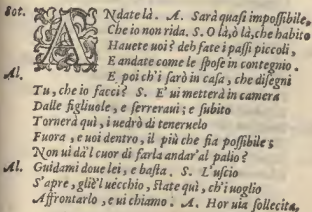 Sot. ANdate là. A. Sarà quaſi impoſſibile,
Che io non rida. S. O là, ò là, che habito
Hauete uoi? deh fate i paſſi piccoli,
E andate come le ſpoſe in contegno.
Al. E poi ch'i ſarò in caſa, che diſegni
Tu, che io facci? S. E' ui metterà in camera
Dalle figliuole, e ſerreraui; e ſubito
Tornerà quì, i uedrò di teneruelo
Fuora, e uoi dentro, il più che ſia poſſibile;
Non ui dà l'cuor di farla andar'al palio?
Al. Guidami doue lei, e baſta. S. L'uſcio
S'apre, gliè'l uècchio, ſtate quì, ch'i uoglio
Affrontarlo, e ui chiamo. A. Hor uia ſollecita,